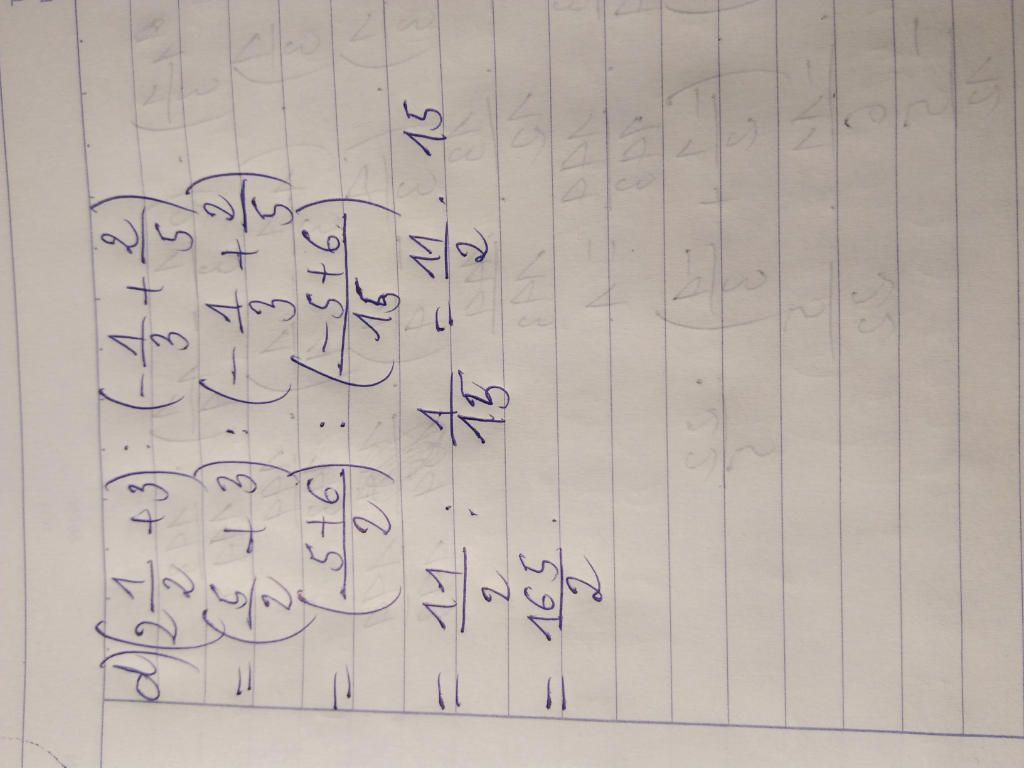 d) (2 1/2 + 3) : (- 1/3 + 2/5)
= (5/2 + 3) : (- 1/3 + 2/5)
= (5+6/2) : (-5+6/15)
= 11/2 : 1/15 = 11/2 . 15
= 165/2 .